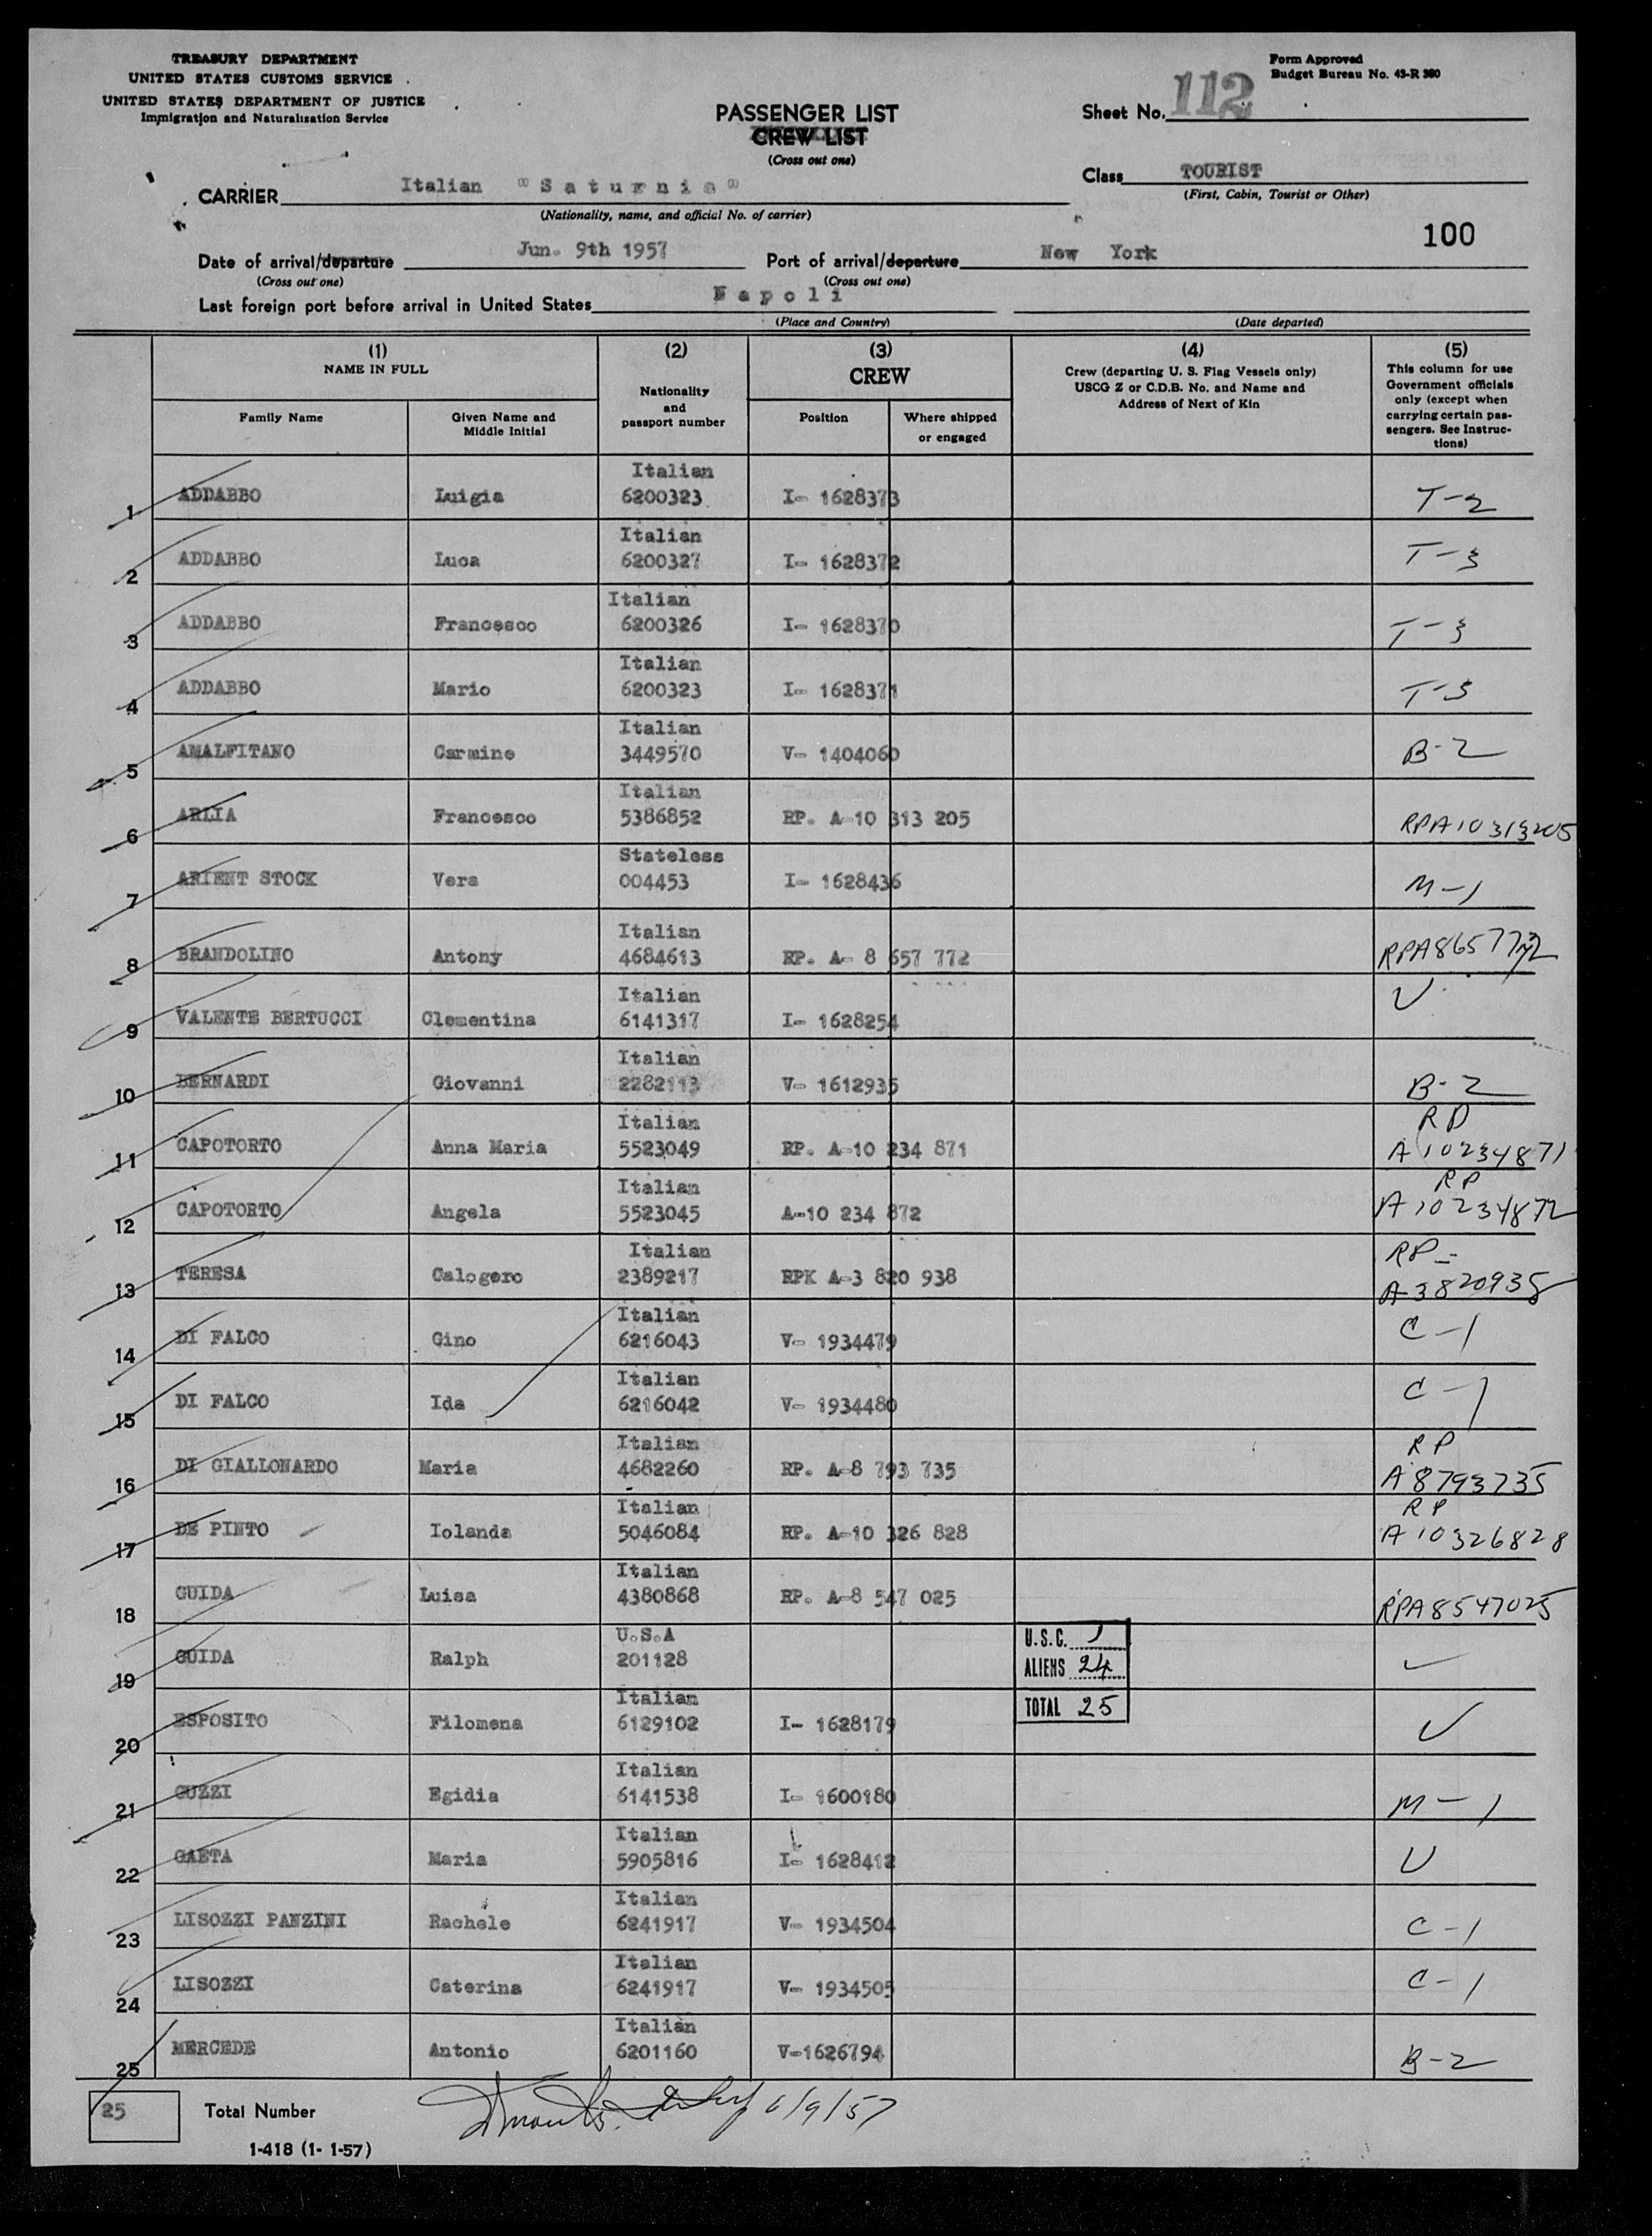 TREASURY DEPARTMENT
UNITED STATES CUSTOMS SERVICE
UNITED STATES DEPARTMENT OF JUSTICE
Immigration and Naturalization Service
Form Approved
Budget Bureau No. 43-R 380
PASSENGER LIST
CREW LIST
(Cross out one)
Sheet No. 112
Class TOURIST
(First, Cabin, Tourist or Other)
CARRIER Italian "Saturnia"
(Nationality, name, and official No. of carrier)
100
Date of arrival/departure Jun. 9th 1957 Port of arrival/departure New York
(Cross out one) (Cross out one)
Last foreign port before arrival in United States Napoli
(Place and Country) (Date departed)
(1) NAME IN FULL (2) Nationality and passport number (3) CREW (4) Crew (departing U. S. Flag Vessels only) USCG Z or C.D.B. No. and Name and Address of Next of Kin (5) This column for use Government officials only (except when carrying certain passengers. See Instructions)
Family Name Given Name and Middle Initial Position Where shipped or engaged
Italian
1 ADDABBO Luigia 6200323 I- 1628373 T-2
Italian
2 ADDABBO Luca 6200327 I- 1628372 T-3
Italian
3 ADDABBO Francesco 6200326 I- 1628370 T-3
Italian
4 ADDABBO Mario 6200323 I- 1628371 T-3
Italian
5 AMALFITANO Carmine 3449570 V- 1404060 B-2
Italian
6 ARLIA Francesco 5386852 RP. A-10 313 205 RPA10313205
Stateless
7 ARIENT STOCK Vera 004453 I- 1628436 M-1
Italian
8 BRANDOLINO Antony 4684613 RP. A- 8 657 772 RPA8657772
Italian
9 VALENTE BERTUCCI Clementina 6141317 I- 1628254 U
Italian
10 BERNARDI Giovanni 2282113 V- 1612935 B-2
Italian RP
11 CAPOTORTO Anna Maria 5523049 RP. A-10 234 871 A10234871
Italian RP
12 CAPOTORTO Angela 5523045 A-10 234 872 A10234872
Italian RP-
13 TERESA Calogero 2389217 RPK A-3 820 938 A3820938
Italian
14 DI FALCO Gino 6216043 V- 1934479 C-1
Italian
15 DI FALCO Ida 6216042 V- 1934480 C-1
Italian RP
16 DI GIALLONARDO Maria 4682260 RP. A-8 793 735 A8793735
Italian RP
17 DE PINTO Iolanda 5046084 RP. A-10 326 828 A10326828
Italian
18 GUIDA Luisa 4380868 RP. A-8 547 025 RPA8547025
U.S.A U.S.C. 1
19 GUIDA Ralph 201128 ALIENS 24
Italian TOTAL 25
20 ESPOSITO Filomena 6129102 I- 1628179 U
Italian
21 GUZZI Egidia 6141538 I- 1600180 M-1
Italian
22 GAETA Maria 5905816 I- 1628412 U
Italian
23 LISOZZI PANZINI Rachele 6241917 V- 1934504 C-1
Italian
24 LISOZZI Caterina 6241917 V- 1934505 C-1
Italian
25 MERCEDE Antonio 6201160 V-1626794 B-2
25 Total Number 6/9/57
1-418 (1- 1-57)